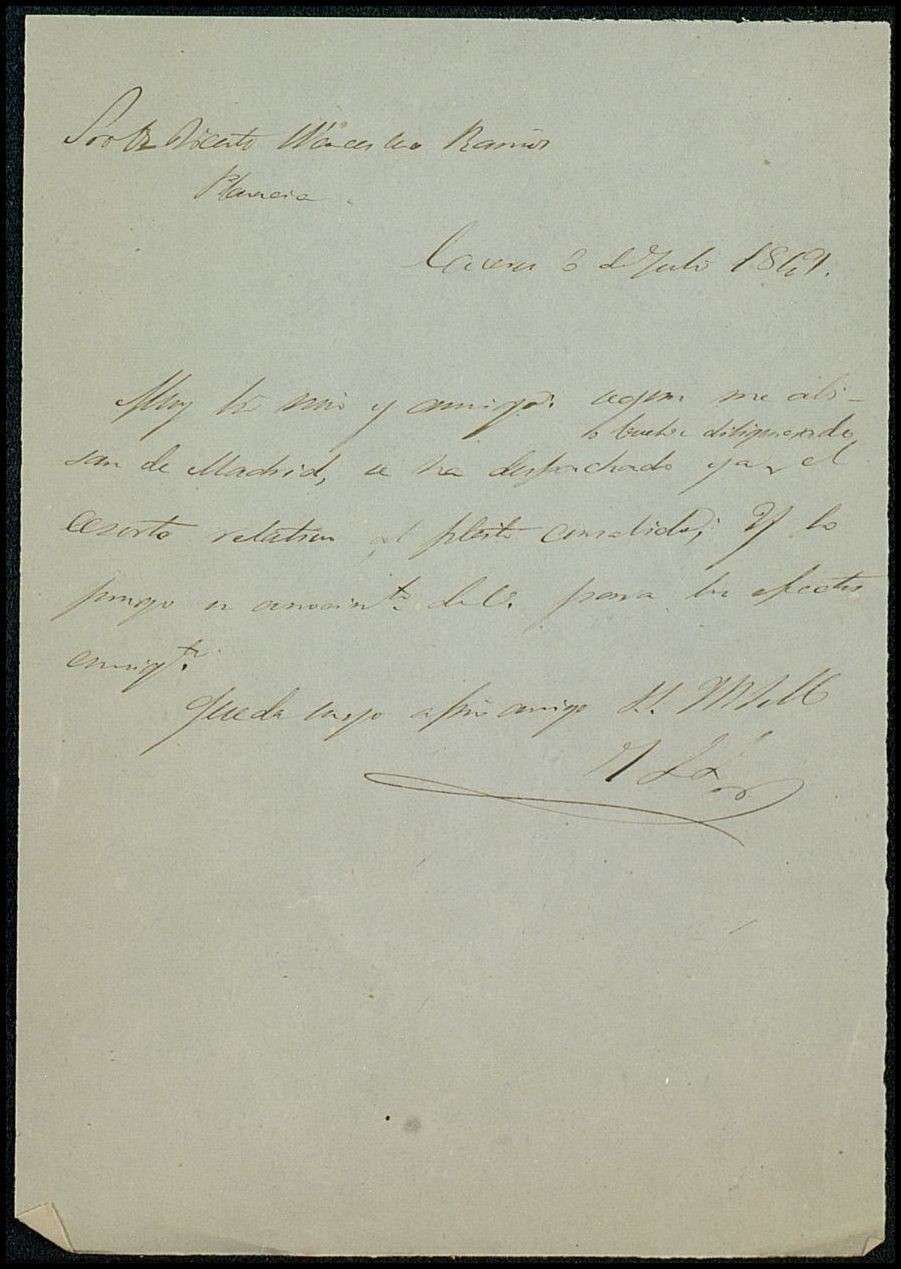 Sor Dn Vicente Wenceslao Ramos
Plasencia.
Caceres 3 de Julio 1861.
Muy Sr mio y amigo: segun me avi-
lo buelve diligenciado
san de Madrid, se ha despachado ya, el
ecsorto relativo al pleito consabido; Y lo
pongo en conocimto. de V. para los efectos
consigtes.
Queda suyo affmo amigo S. S.